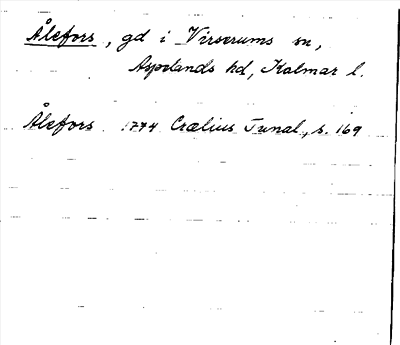 Ålefors, gd i Virserums sn,
Aspelands hd, Kalmar l.
Ålefors 1774 Crælius Tunal., s. 169